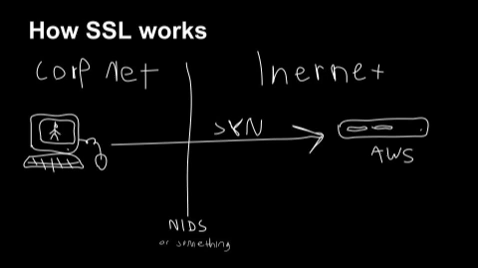 How SSL works
Corp Net
Inernet
SYN
AWS
NIDS
or something